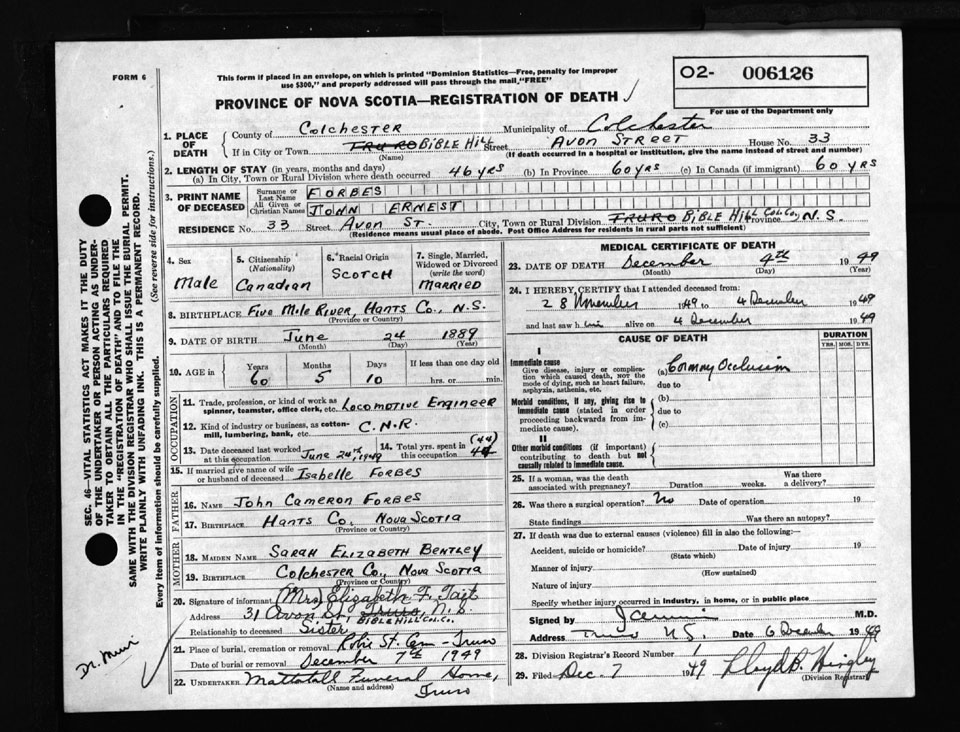 FORM 6
This form if placed in an envelope, on which is printed "Dominion Statistics—Free, penalty for improper
use $300," and properly addressed will pass through the mail, "FREE"
O2- 006126
For use of the Department only
PROVINCE OF NOVA SCOTIA—REGISTRATION OF DEATH
1. PLACE OF DEATH County of Colchester Municipality of Colchester
If in City or Town TRURO BIBLE HILL Street AVON STREET House No. 33
(Name) (If death occurred in a hospital or institution, give the name instead of street and number)
2. LENGTH OF STAY (in years, months and days)
(a) In City, Town or Rural Division where death occurred 46 yrs (b) In Province 60 yrs (c) In Canada (if immigrant) 60 yrs
3. PRINT NAME OF DECEASED Surname or Last Name FORBES
All Given or Christian Names JOHN ERNEST
RESIDENCE No. 33 Street Avon St. City, Town or Rural Division TRURO Bible Hill Col. Co. Province N.S.
(Residence means usual place of abode. Post Office Address for residents in rural parts not sufficient)
4. Sex Male
5. Citizenship (Nationality) Canadian
6. Racial Origin Scotch
7. Single, Married, Widowed or Divorced (write the word) Married
8. BIRTHPLACE Five Mile River, Hants Co., N.S.
(Province or Country)
9. DATE OF BIRTH June 24 1889
(Month) (Day) (Year)
10. AGE in Years 60 Months 5 Days 10 If less than one day old hrs. or min.
OCCUPATION
11. Trade, profession, or kind of work as spinner, teamster, office clerk, etc. Locomotive Engineer
12. Kind of industry or business, as cotton-mill, lumbering, bank, etc. C.N.R.
13. Date deceased last worked at this occupation June 24th, 1949
14. Total yrs. spent in this occupation (44) 44
15. If married give name of wife or husband of deceased Isabelle Forbes
FATHER
16. Name John Cameron Forbes
17. Birthplace Hants Co., Nova Scotia
(Province or Country)
MOTHER
18. MAIDEN NAME Sarah Elizabeth Bentley
19. BIRTHPLACE Colchester Co., Nova Scotia
(Province or Country)
20. Signature of informant (Mrs) Elizabeth F. Tait
Address 31 Avon St., Truro, N.S.
BIBLE HILL COL. CO.
Relationship to deceased Sister
21. Place of burial, cremation or removal Robie St. Cem - Truro
Date of burial or removal December 7th 1949
22. UNDERTAKER Mattatall Funeral Home,
(Name and address) Truro
MEDICAL CERTIFICATE OF DEATH
23. DATE OF DEATH December 4th 1949
(Month) (Day) (Year)
24. I HEREBY CERTIFY that I attended deceased from:
28 November 1949 to 4 December 1949
and last saw him alive on 4 December 1949
CAUSE OF DEATH
DURATION
YRS. MOS. DYS.
I
Immediate cause
Give disease, injury or complication which caused death, not the mode of dying, such as heart failure, asphyxia, asthenia, etc.
(a) Coronary Occlusion
due to
Morbid conditions, if any, giving rise to immediate cause (stated in order proceeding backwards from immediate cause).
(b)
due to
(c)
II
Other morbid conditions (if important) contributing to death but not causally related to immediate cause.
25. If a woman, was the death associated with pregnancy? Duration weeks. Was there a delivery?
26. Was there a surgical operation? No Date of operation 19
State findings Was there an autopsy?
27. If death was due to external causes (violence) fill in also the following:
Accident, suicide or homicide? Date of injury 19
(State which)
Manner of injury
(How sustained)
Nature of injury
Specify whether injury occurred in industry, in home, or in public place
Signed by M.D.
Address Truro N.S. Date 6 December 1949
28. Division Registrar's Record Number 1
29. Filed Dec. 7 1949 Lloyd B. Hingley
(Division Registrar)
SEC. 46—VITAL STATISTICS ACT MAKES IT THE DUTY
OF THE UNDERTAKER OR PERSON ACTING AS UNDER-
TAKER TO OBTAIN ALL THE PARTICULARS REQUIRED
IN THE "REGISTRATION OF DEATH" AND TO FILE THE
SAME WITH THE DIVISION REGISTRAR WHO SHALL ISSUE THE BURIAL PERMIT.
WRITE PLAINLY WITH UNFADING INK. THIS IS A PERMANENT RECORD.
Every item of information should be carefully supplied. (See reverse side for instructions.)
Dr. Muir